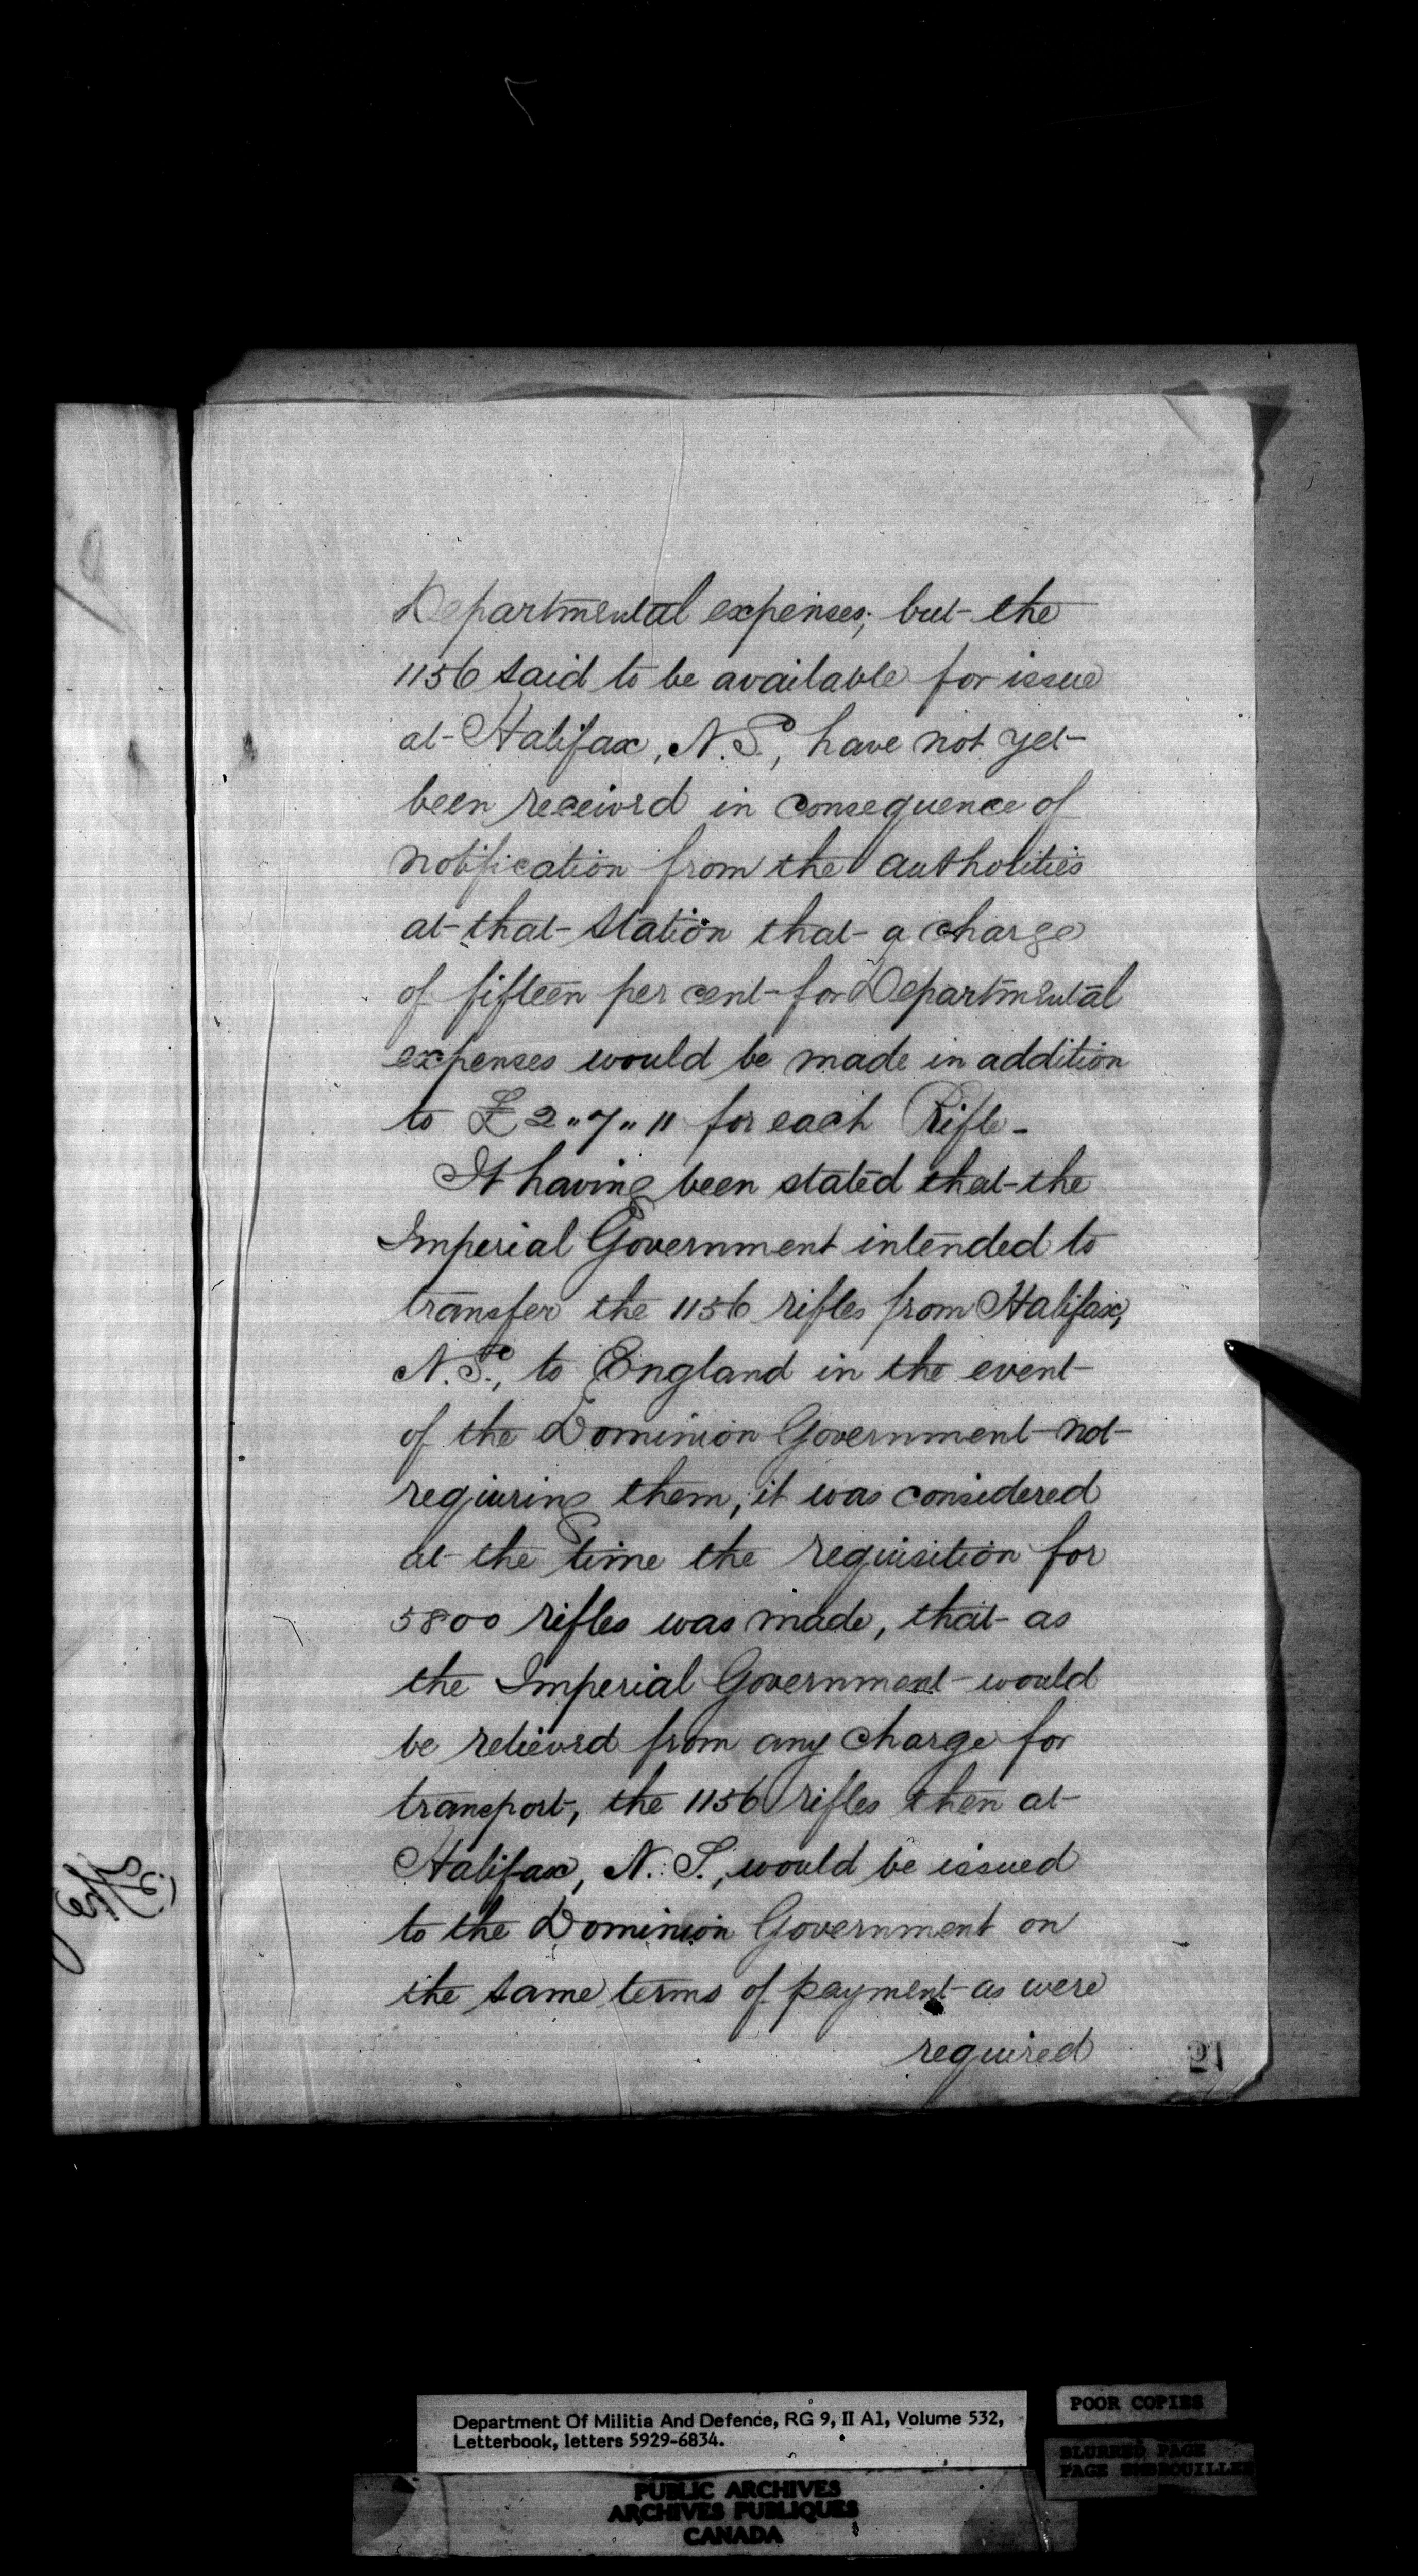 Departmental expenses; but the
1156 said to be available for issue
at Halifax, N.S., have not yet
been received in consequence of
notification from the authorities
at that station that a charge
of fifteen per cent for Departmental
expenses would be made in addition
to £2"7"11 for each Rifle-
It having been stated that the
Imperial Government intended to
transfer the 1156 rifles from Halifax,
N.S., to England in the event
of the Dominion Government not
requiring them, it was considered
at the time the requisition for
5800 rifles was made, that as
the Imperial Government would
be relieved from any charge for
transport, the 1156 rifles then at
Halifax, N.S., would be issued
to the Dominion Government on
the same terms of payment as were
required
Department Of Militia And Defence, RG 9, II A1, Volume 532,
Letterbook, letters 5929-6834.
POOR COPIES
BLURRED PAGE
PAGE EMBROUILLEE
PUBLIC ARCHIVES
ARCHIVES PUBLIQUES
CANADA